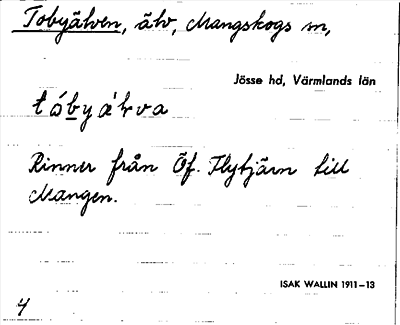 Tobyälven, älv, Mangskogs sn,
Jösse hd, Värmlands län
Rinner från Öf. Flytjärn till
Mangen.
ISAK WALLIN 1911–13
4